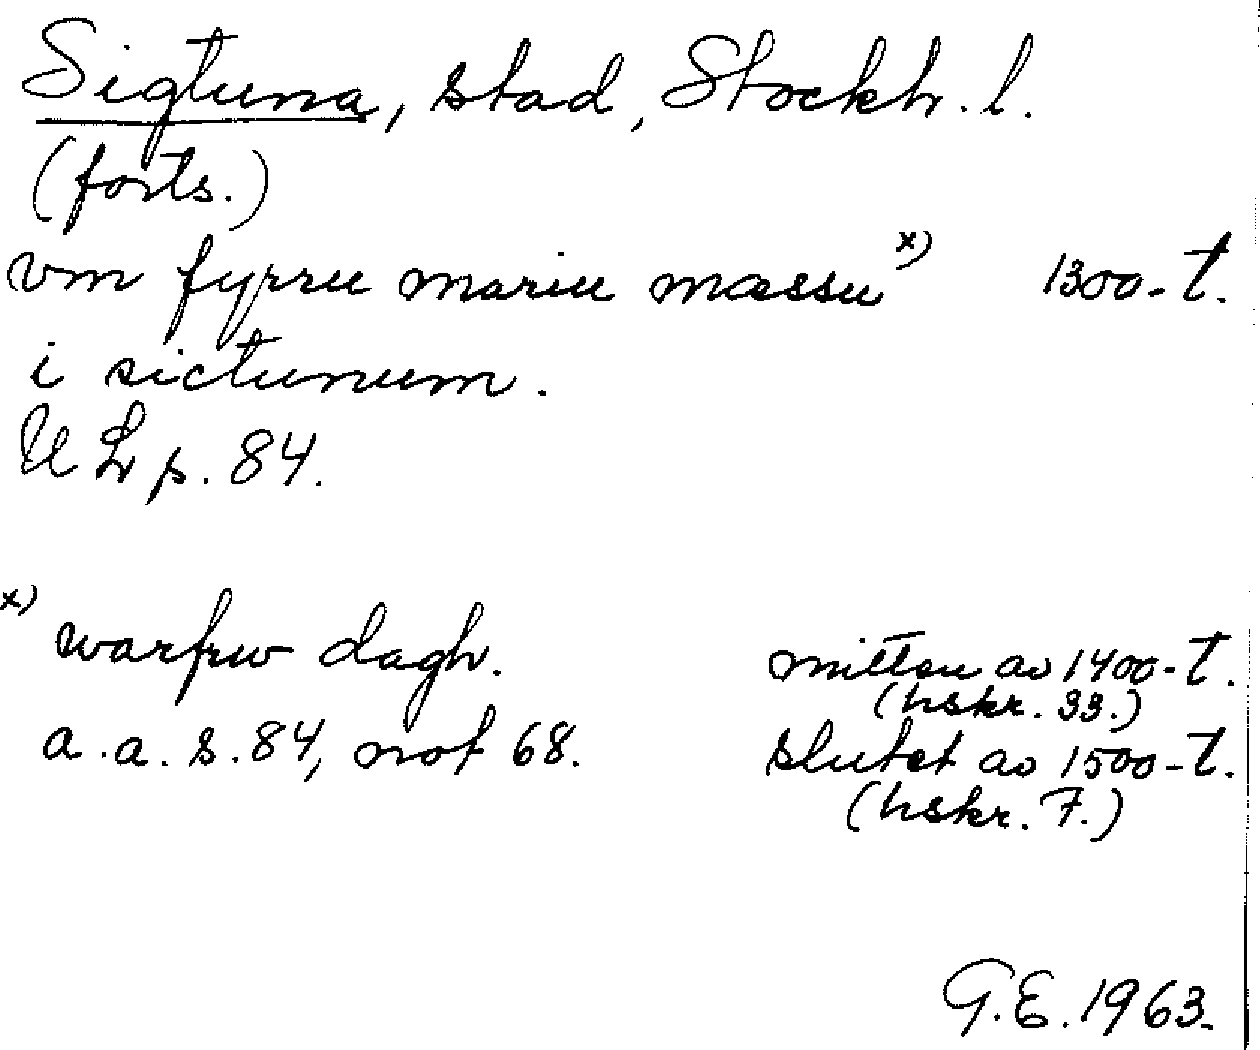 Sigtuna, stad, Stockh. l.
(forts.)
vm fyrru mariu mæssu x) 1300-t.
i sictunum.
U L p. 84.
x) warfrw dagh. mitten av 1400-t.
(hskr. 33.)
a.a. s. 84, not 68. slutet av 1500-t.
(hskr. 7.)
G.E. 1963.